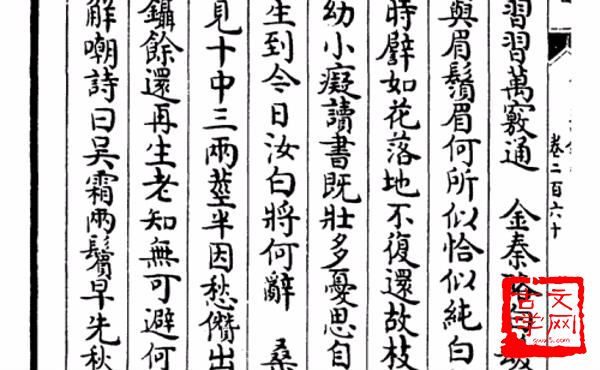 卷二百六十
習習萬竅通　金秦
與眉鬚眉何所似恰似純白
時譬如花落地不復還故枝
幼小癡讀書既壯多憂思自
生到今日汝白將何辭　桑
見十中三兩莖半因愁儹出
鑷餘還再生老知無可避何
解嘲詩曰吳霜兩鬢早先秋
古文
学网